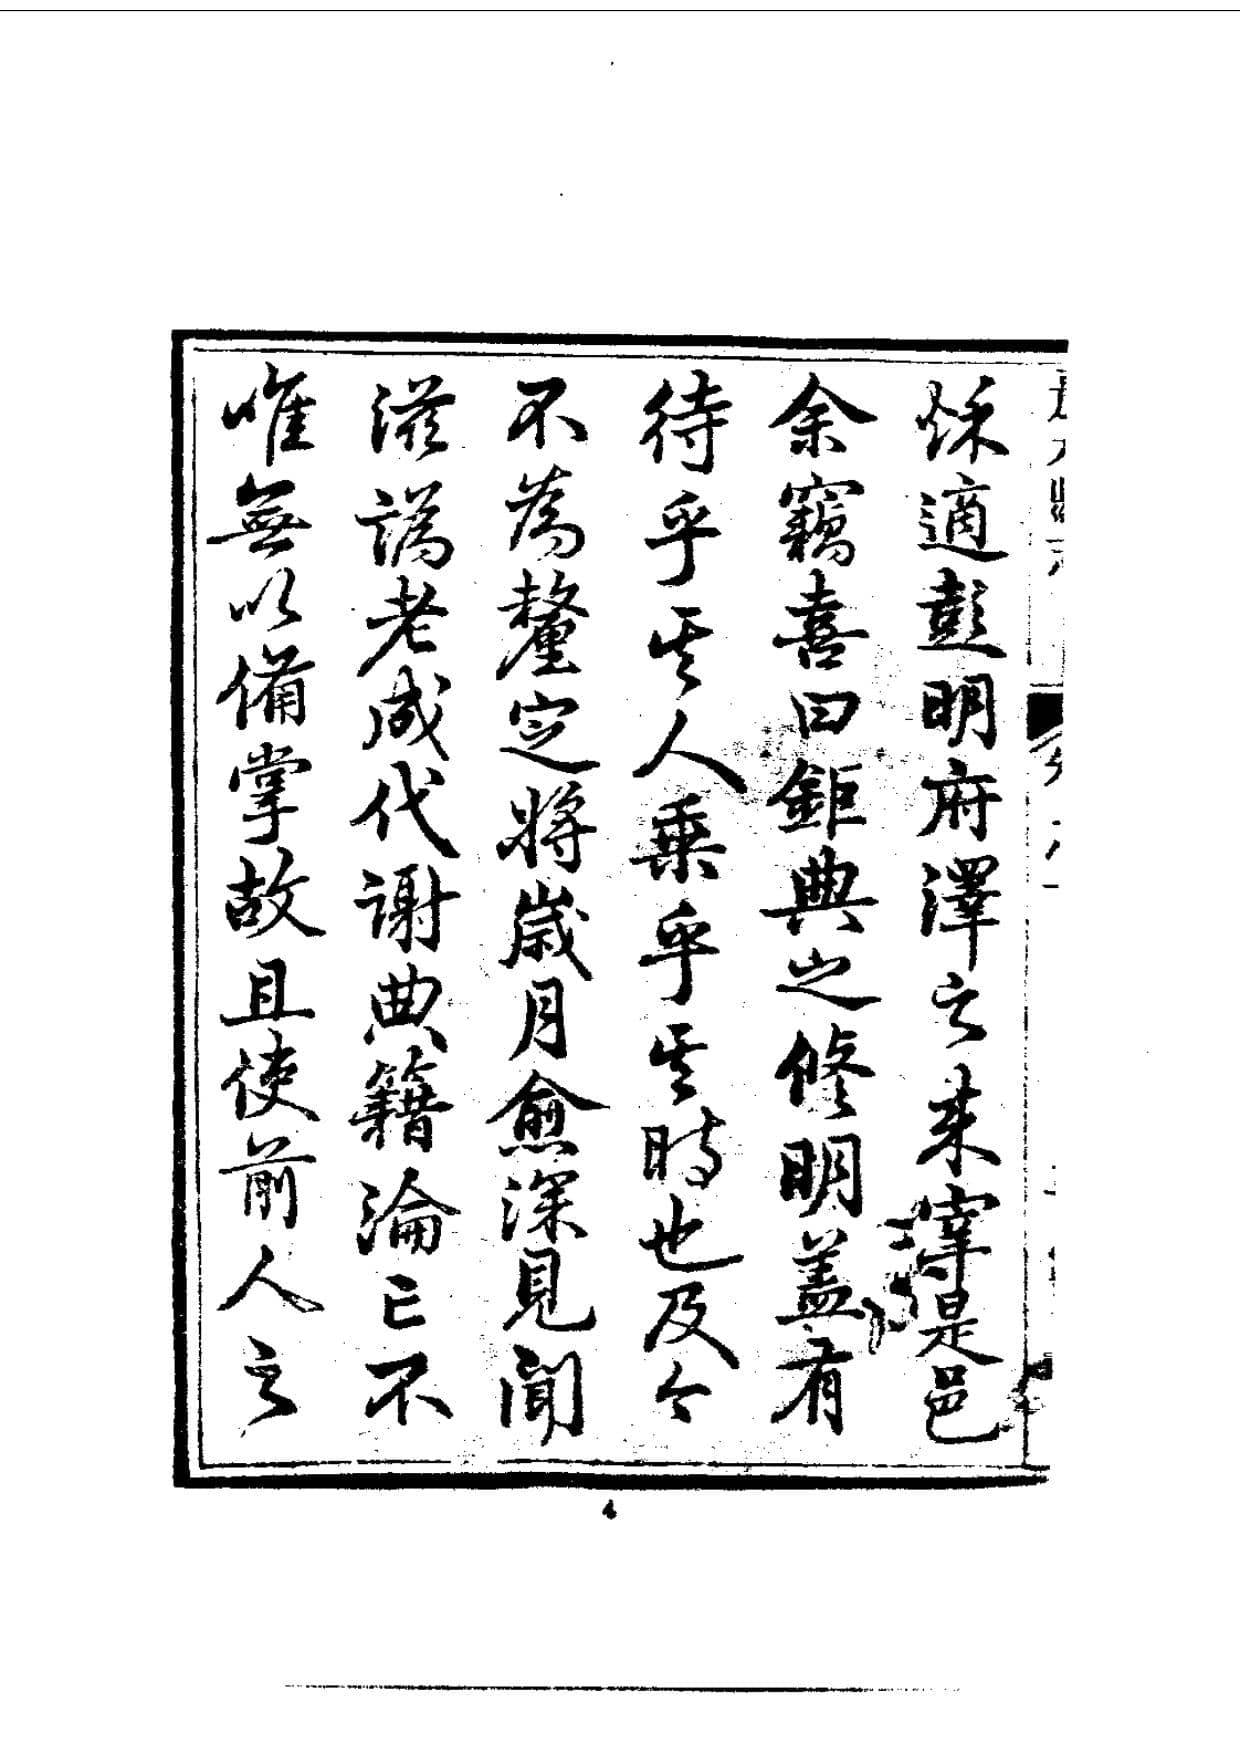 秌適彭明府澤之來宰是邑
余竊喜曰鉅典之修明蓋有
待乎其人乗乎其時也及今
不為釐定將歲月愈深見聞
滋譌老成代謝典籍淪亡不
唯無以備掌故且使前人之